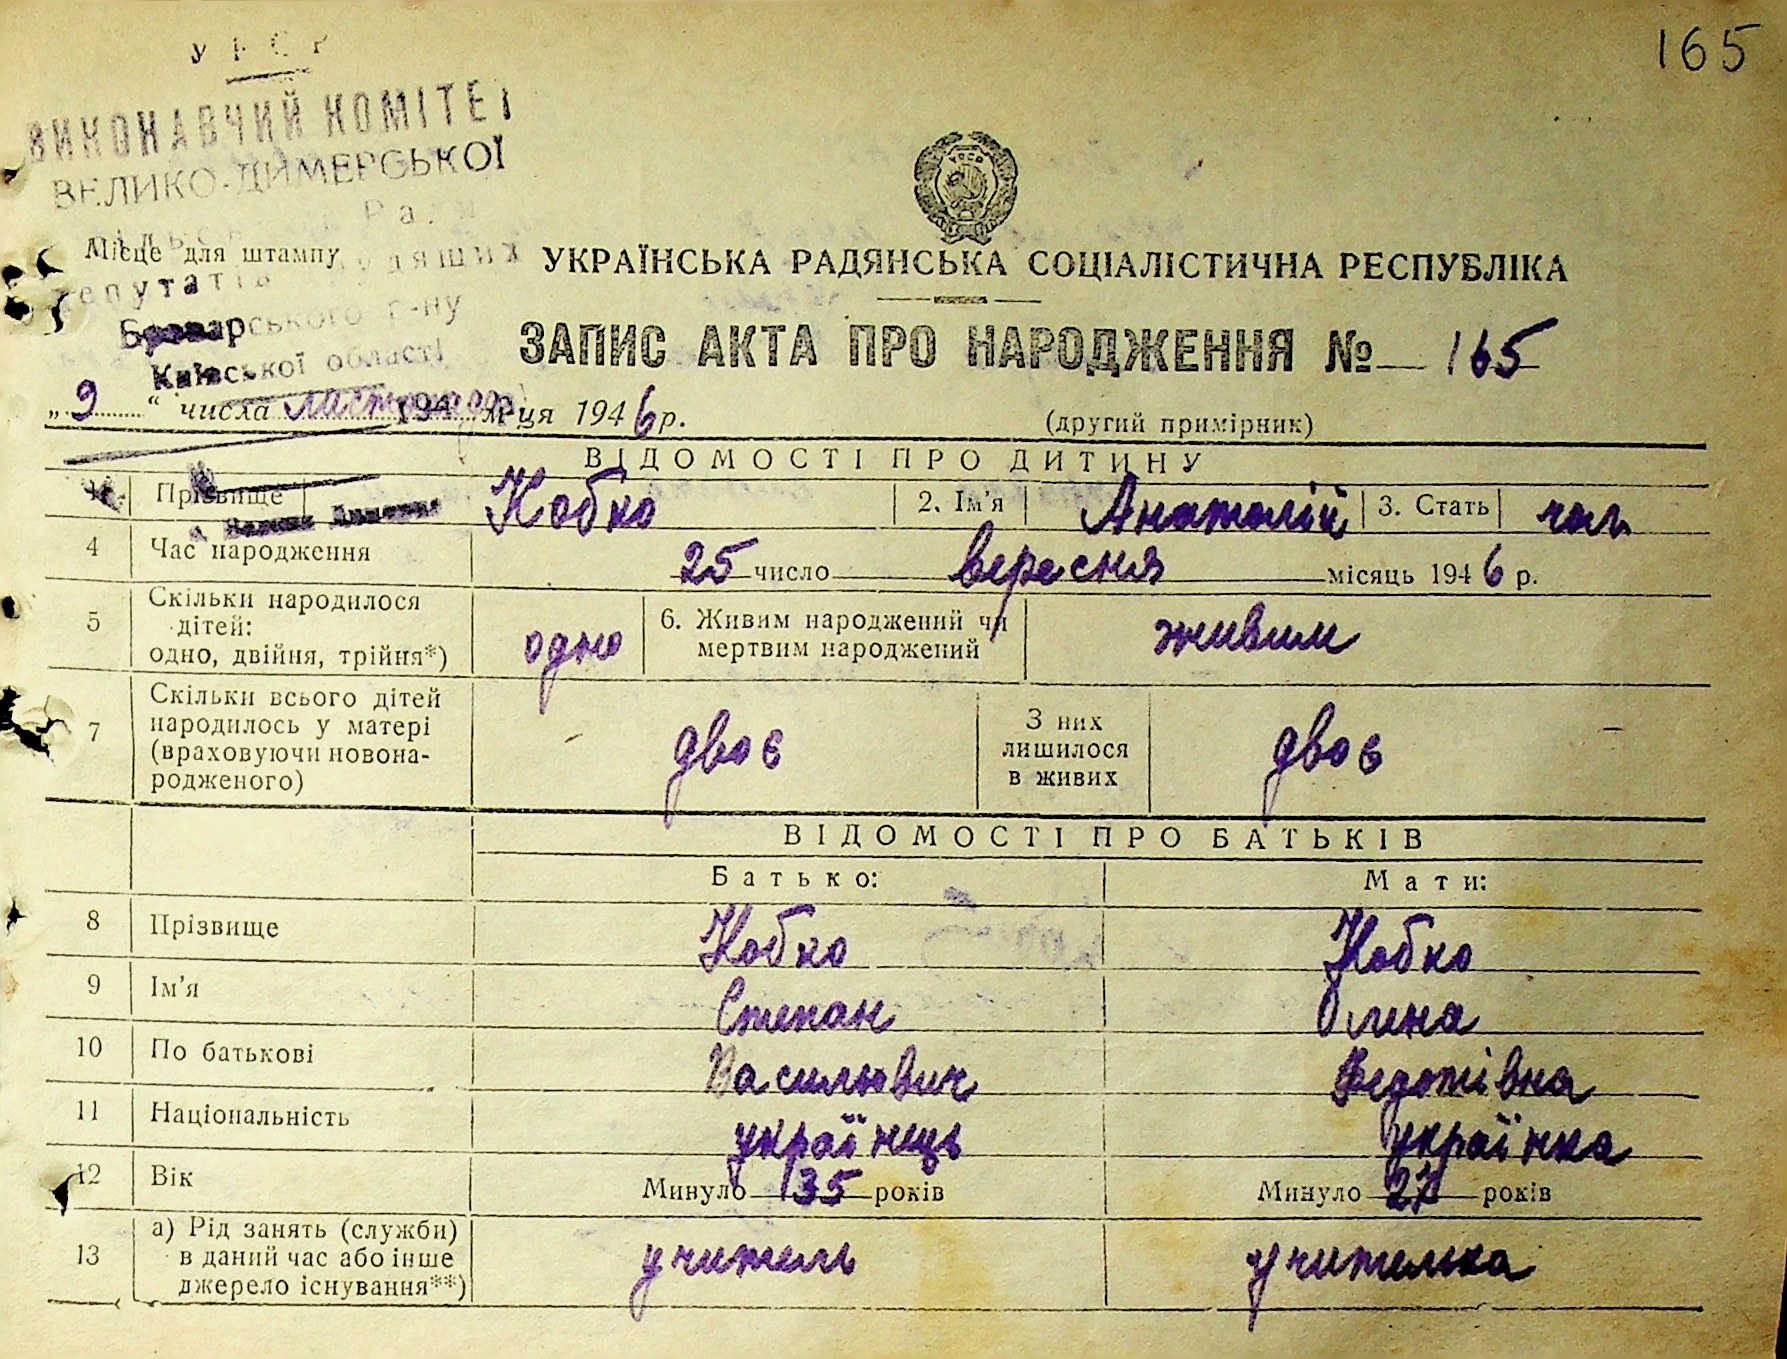 165
УРСР
ВИКОНАВЧИЙ КОМІТЕТ
ВЕЛИКО-ДИМЕРСЬКОЇ
Ради
Місце для штампу
депутатів трудящих
Броварського р-ну
Київської області
УКРАЇНСЬКА РАДЯНСЬКА СОЦІАЛІСТИЧНА РЕСПУБЛІКА
ЗАПИС АКТА ПРО НАРОДЖЕННЯ № 165
„9“ числа листопада м-ця 1946 р.
(другий примірник)
ВІДОМОСТІ ПРО ДИТИНУ
Прізвище Кобко 2. Ім'я Анатолій 3. Стать чол.
4 Час народження 25 число вересня місяць 1946 р.
5 Скільки народилося дітей: одно, двійня, трійня*) одно 6. Живим народжений чи мертвим народжений живим
7 Скільки всього дітей народилось у матері (враховуючи новонародженого) двоє З них лишилося в живих двоє
ВІДОМОСТІ ПРО БАТЬКІВ
Батько: Мати:
8 Прізвище Кобко Кобко
9 Ім'я Степан Олена
10 По батькові Васильович Федотівна
11 Національність українець українка
12 Вік Минуло 35 років Минуло 27 років
13 а) Рід занять (служби) в даний час або інше джерело існування**) учитель учителька